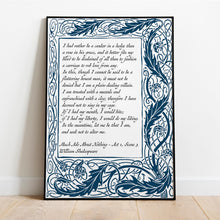 I had rather be a canker in a hedge than
a rose in his grace, and it better fits my
blood to be disdained of all than to fashion
a carriage to rob love from any.
In this, though I cannot be said to be a
flattering honest man, it must not be
denied but I am a plain-dealing villain.
I am trusted with a muzzle and
enfranchised with a clog; therefore I have
decreed not to sing in my cage.
If I had my mouth, I would bite;
if I had my liberty, I would do my liking.
In the meantime, let me be that I am,
and seek not to alter me.
Much Ado About Nothing - Act 1, Scene 3
William Shakespeare